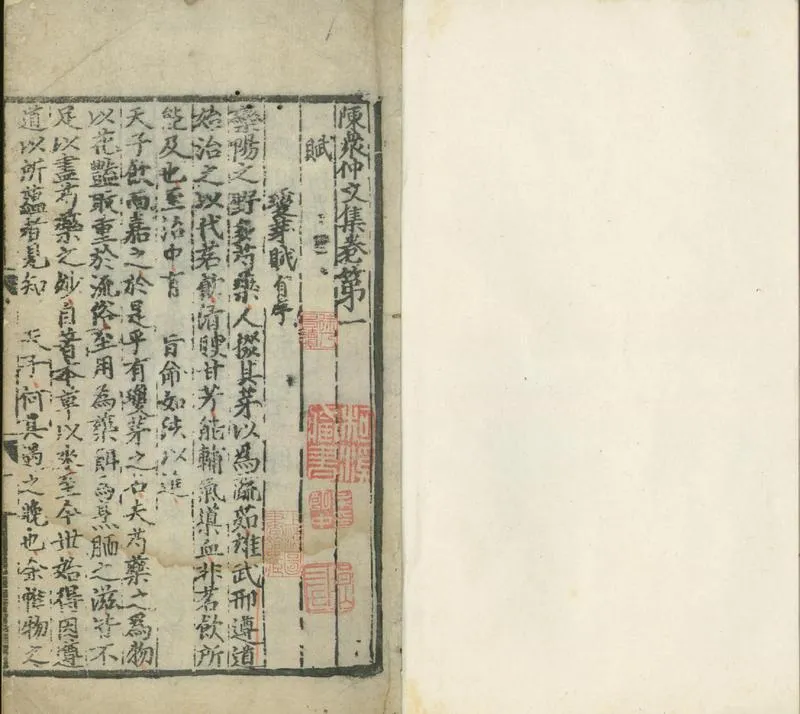 陳衆仲文集卷第一
賦
瓊芽賦有序
灤陽之野多芍藥人掇其芽以為蔬茹雄武邢遵道
始治之以代茗飲清腴甘芳能輔氣導血非茗飲所
能及也至治中有 旨命如法以進
天子飲而嘉之於是乎有瓊芽之名夫芍藥之為物
以花豔取重於流俗至用為藥餌為烹胹之滋皆不
足以盡芍藥之妙自著本草以來至今世始得因遵
道以所蘊者見知 天子何其遇之晚也余惟物之